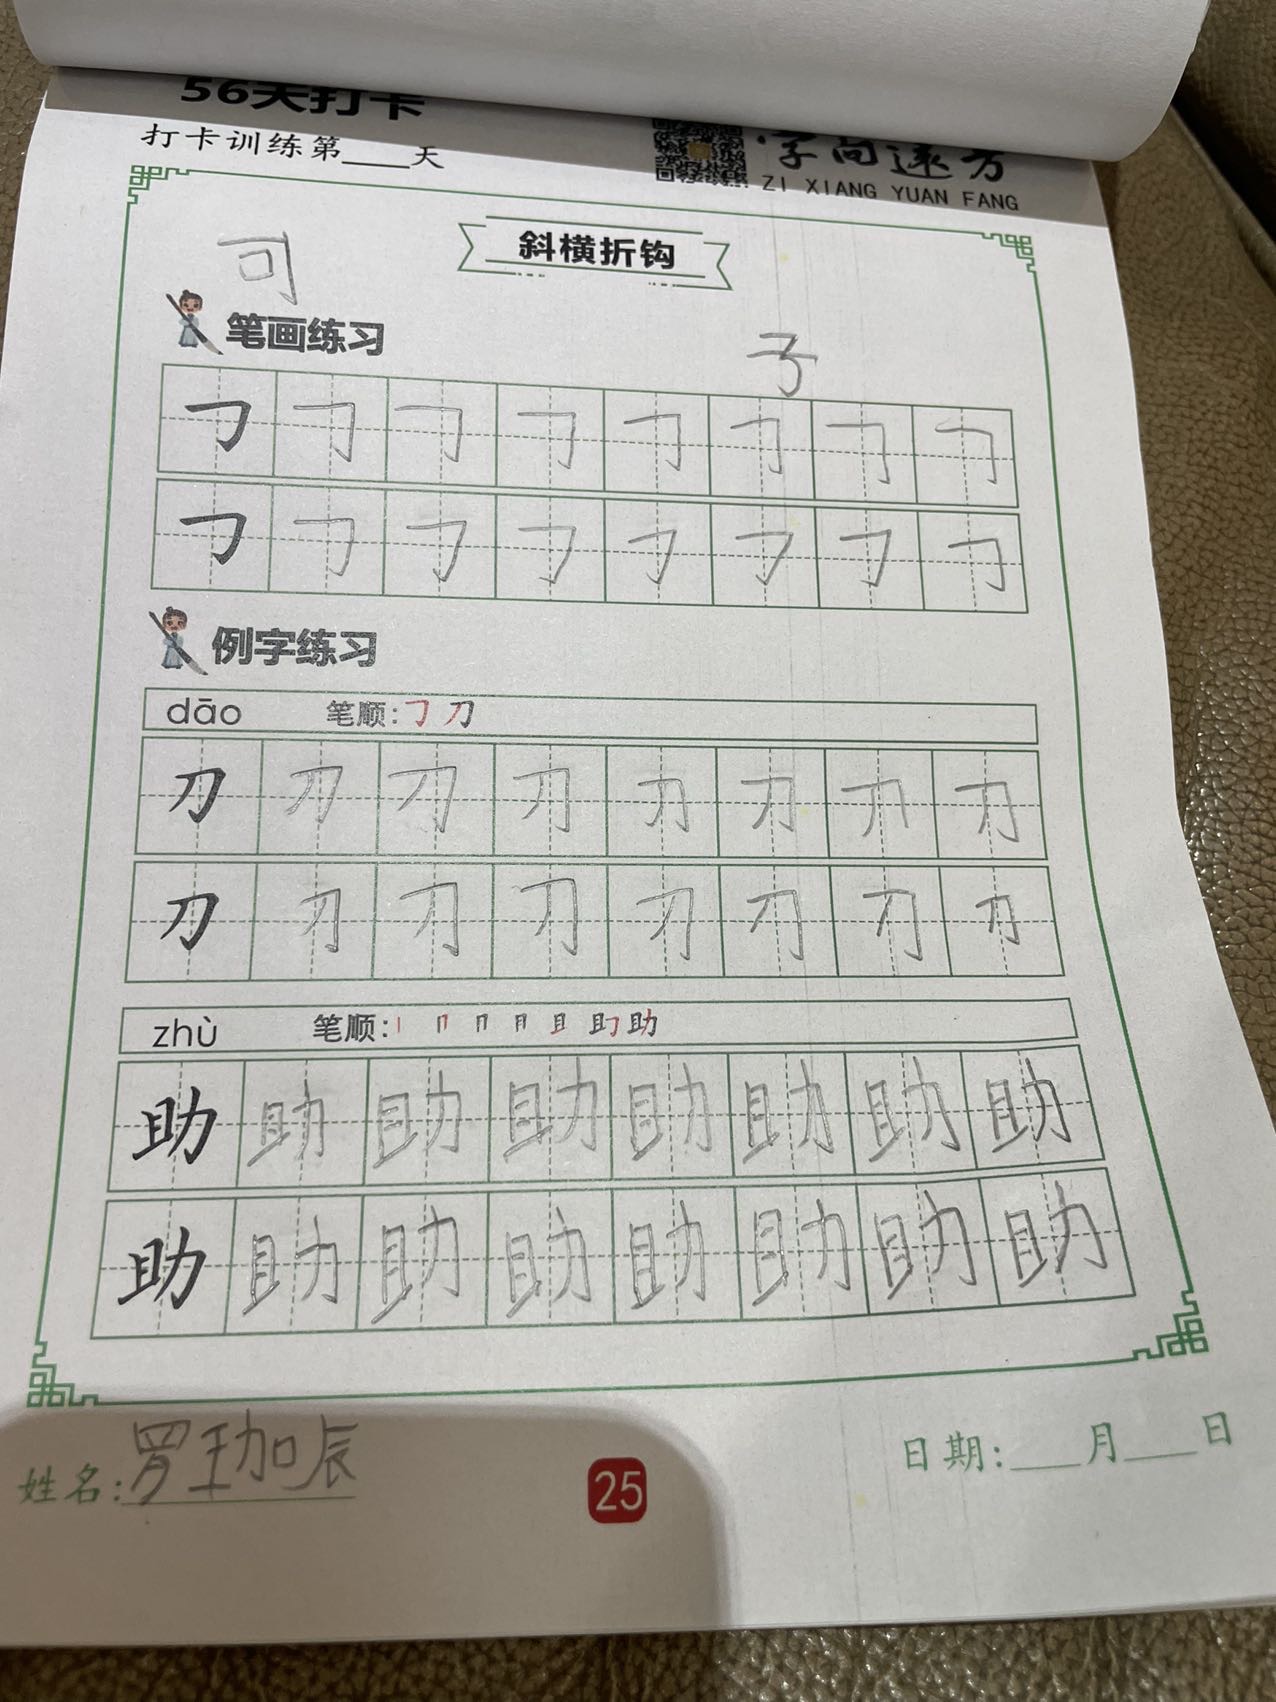 56天打卡
打卡训练第____天
字向远方
ZI XIANG YUAN FANG
斜横折钩
可
笔画练习
子
㇆ ㇆ ㇆ ㇆ ㇆ ㇆ ㇆ ㇆
㇆ ㇆ ㇆ ㇆ ㇆ ㇆ ㇆ ㇆
例字练习
dāo 笔顺:㇆ 刀
刀 刀 刀 刀 刀 刀 刀 刀
刀 刀 刀 刀 刀 刀 刀 刀
zhù 笔顺:丨 冂 冂 月 且 助 助
助 助 助 助 助 助 助 助
助 助 助 助 助 助 助 助
姓名:罗珈辰
25
日期:___月___日